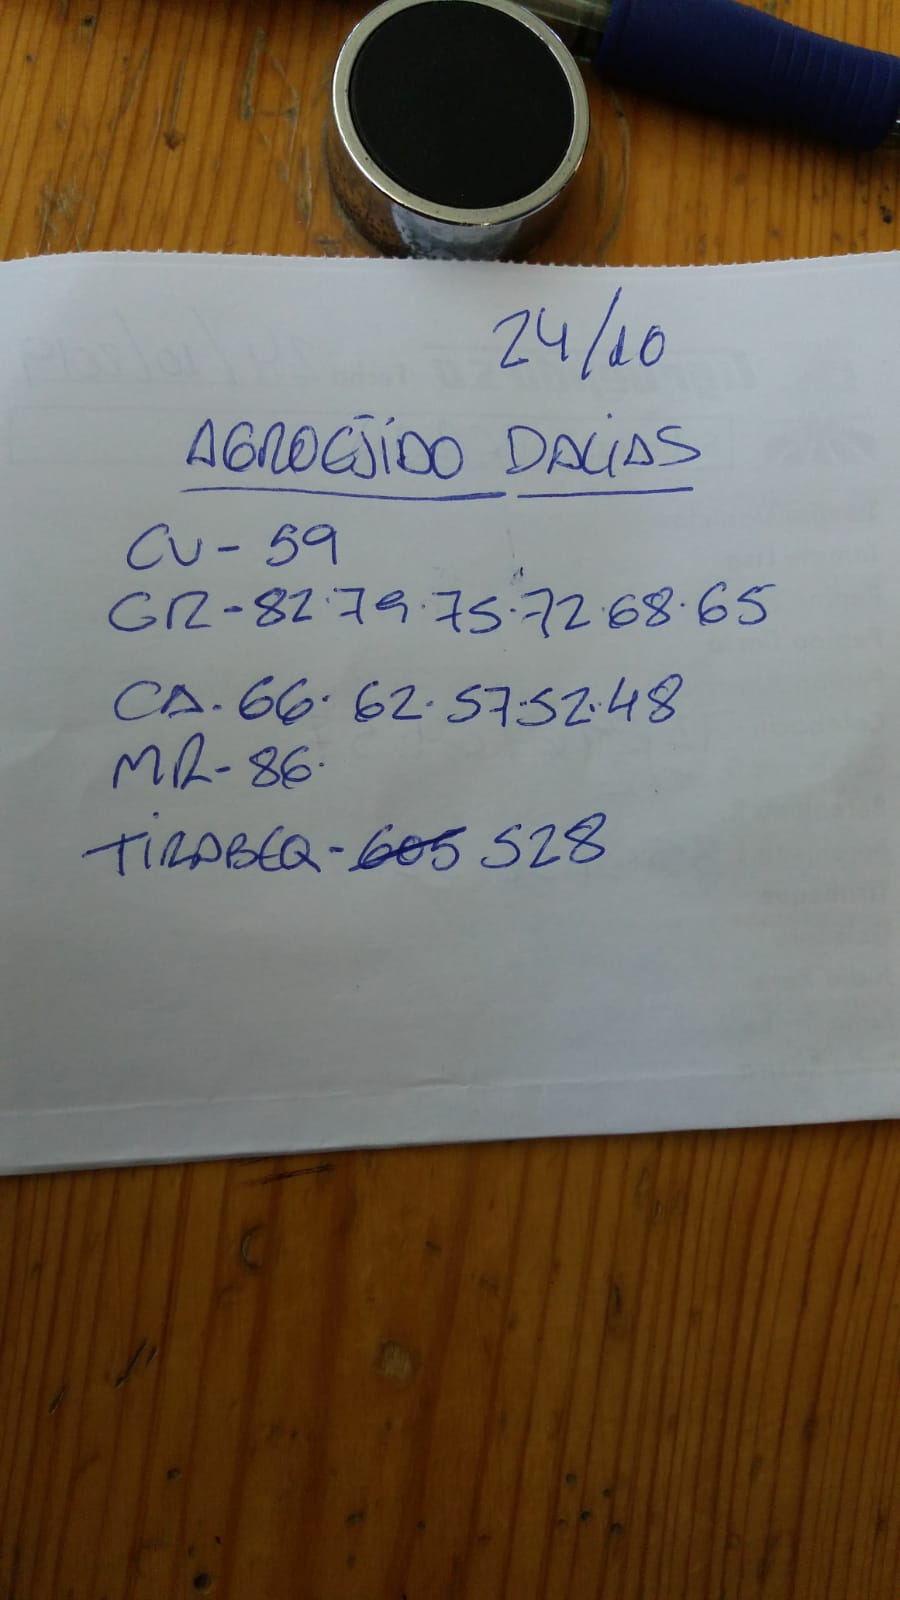 24/10
AGROEJIDO DALIAS
CU- 59
GR-82.79.75.72.68.65
CA.66. 62.57.52.48
MR-86.
TIRABEQ-605 528